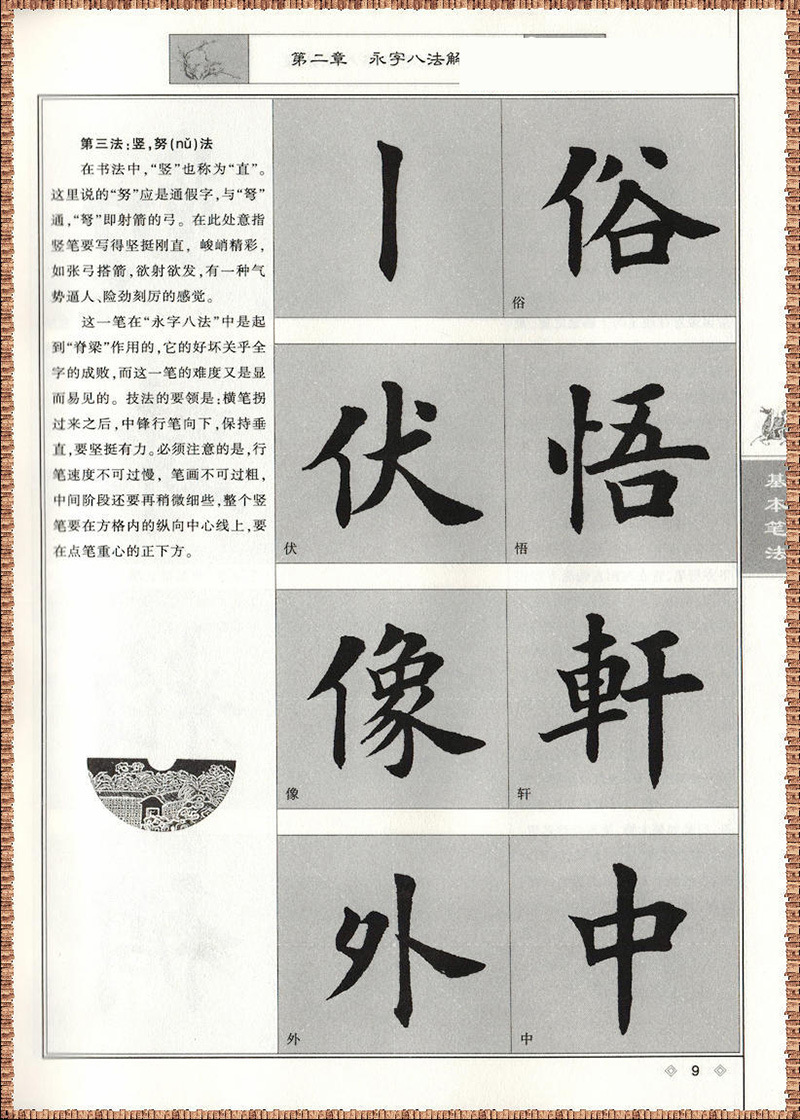 第二章 永字八法解
第三法：竖，努(nǔ)法
在书法中，“竖”也称为“直”。
这里说的“努”应是通假字，与“弩”
通，“弩”即射箭的弓。在此处意指
竖笔要写得坚挺刚直，峻峭精彩，
如张弓搭箭，欲射欲发，有一种气
势逼人、险劲刻厉的感觉。
这一笔在“永字八法”中是起
到“脊梁”作用的，它的好坏关乎全
字的成败，而这一笔的难度又是显
而易见的。技法的要领是：横笔拐
过来之后，中锋行笔向下，保持垂
直，要坚挺有力。必须注意的是，行
笔速度不可过慢，笔画不可过粗，
中间阶段还要再稍微细些，整个竖
笔要在方格内的纵向中心线上，要
在点笔重心的正下方。
丨
俗
俗
伏
伏
悟
悟
像
像
軒
轩
外
外
中
中
基本笔法
9